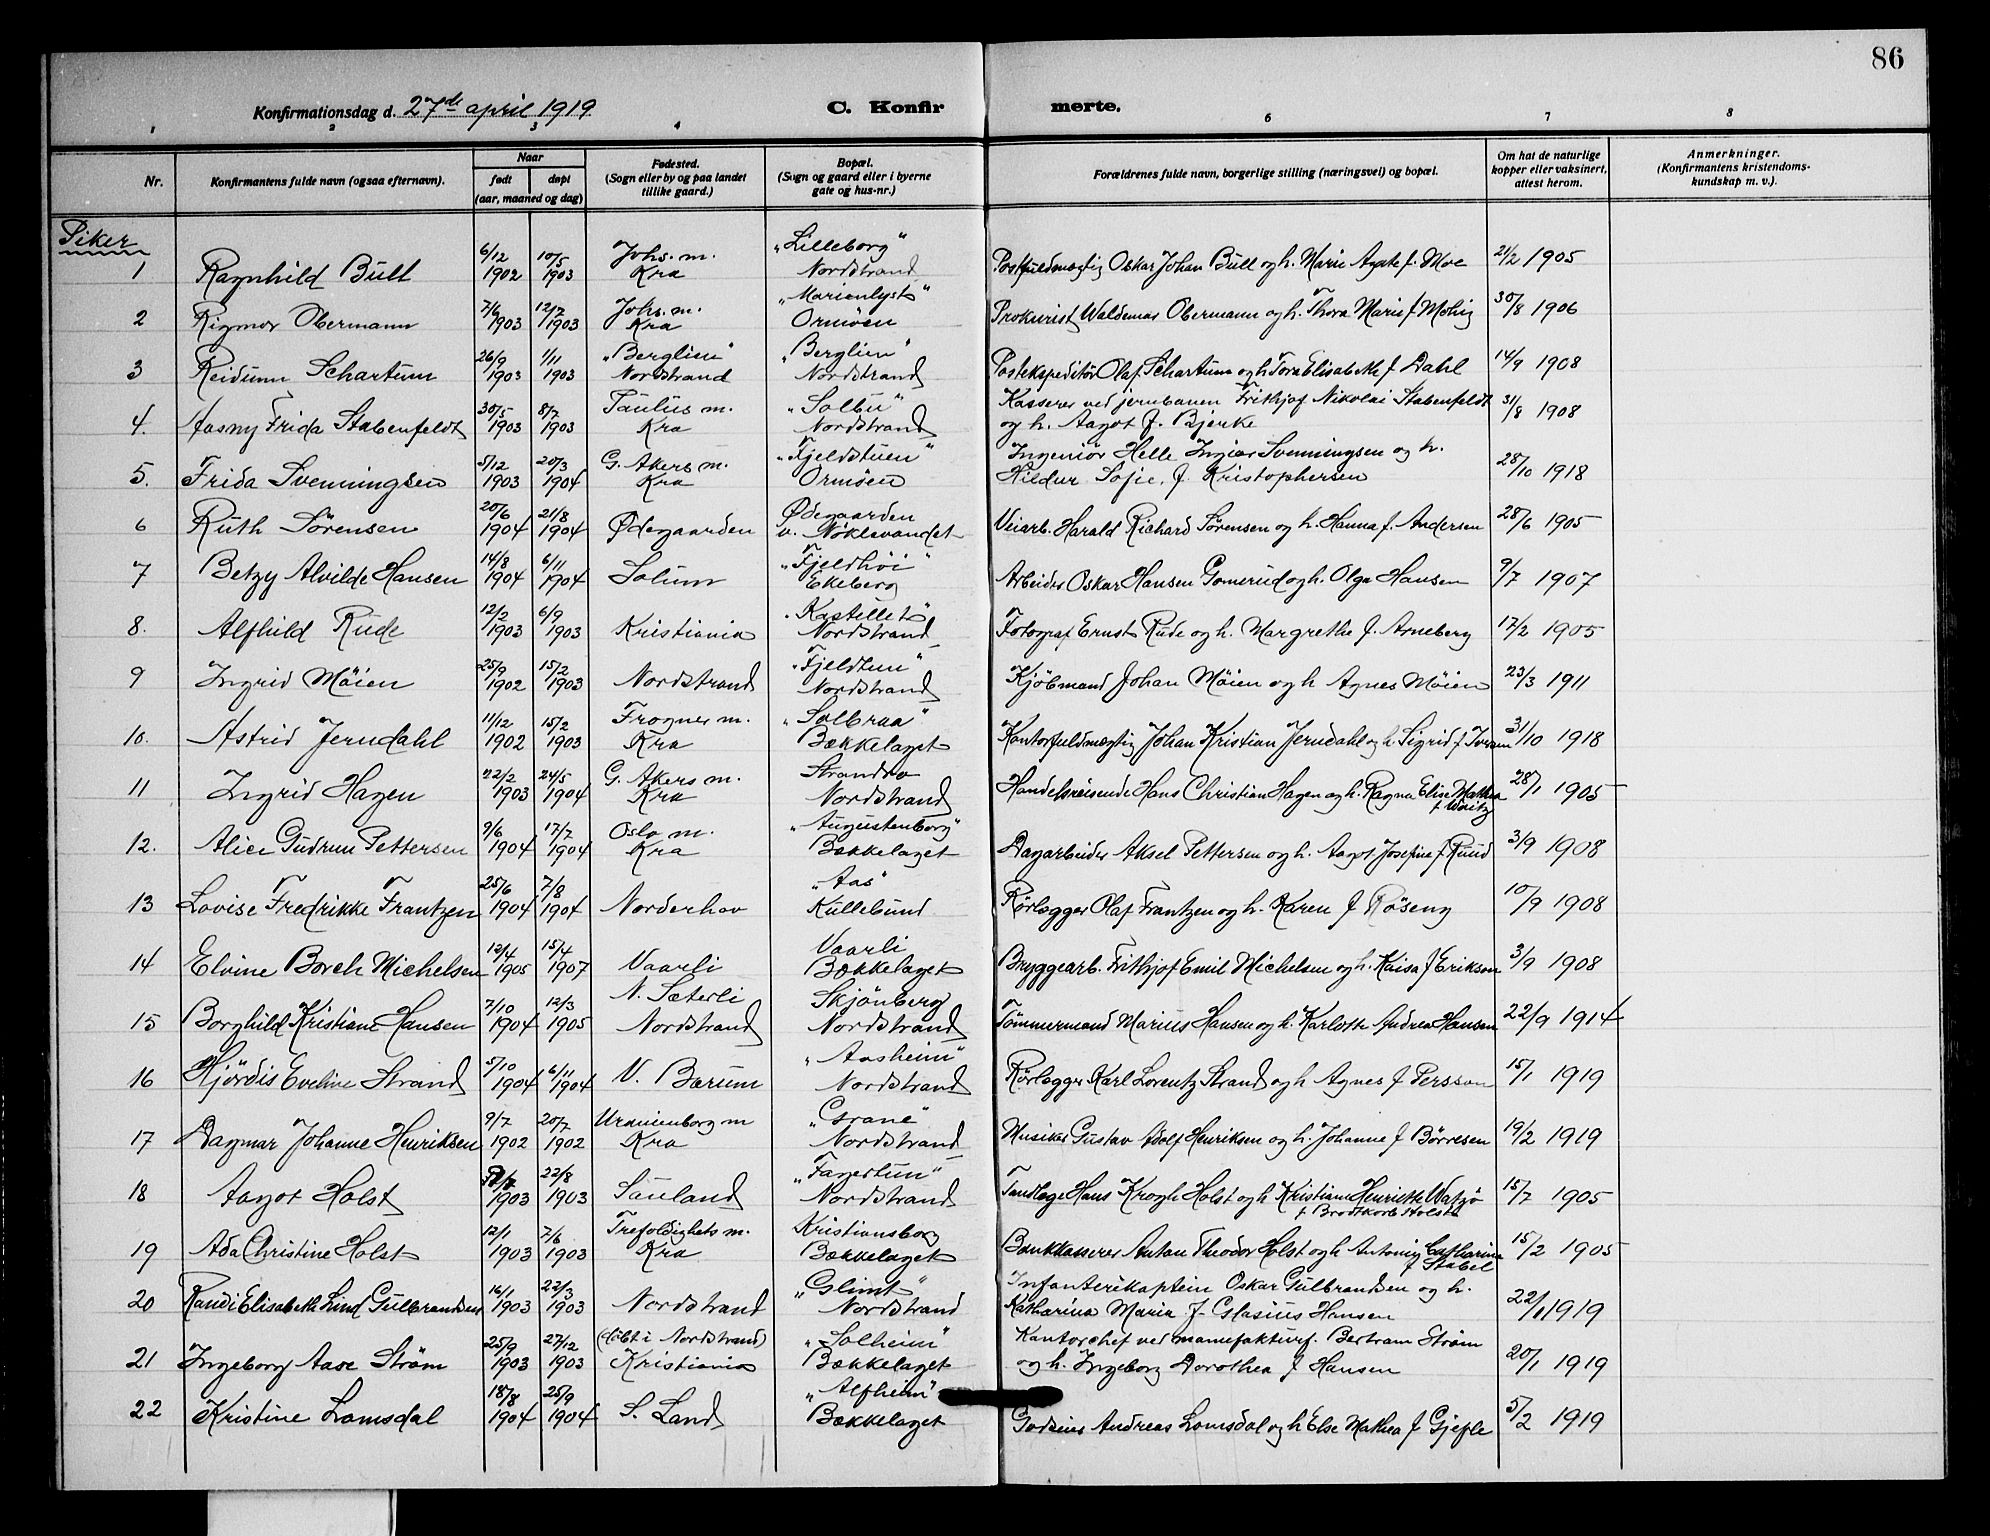 86
Konfirmationsdag d. 27de april 1919 C. Konfir merte.
1 2 3 4 6 7 8
Nr. Konfirmantens fulde navn (ogsaa efternavn). Naar født døpt (aar, maaned og dag) Fødested. (Sogn eller by og paa landet tillike gaard.) Bopæl. (Sogn og gaard eller i byerne gate og hus-nr.) Forældrenes fulde navn, borgerlige stilling (næringsvei) og bopæl. Om hat de naturlige kopper eller vaksinert, attest herom. Anmerkninger. (Konfirmantens kristendoms-kundskap m. v.).
Piker
1 Ragnhild Bull 6/12 1902 10/5 1903 Johs. m. Kra "Lilleborg" Nordstrand Postfuldmægtig Oskar Johan Bull og h. Marie Agate f. Moe 21/2 1905
2 Rigmor Obermann 7/6 1903 12/7 1903 Johs. m. Kra "Marienlyst" Ormöen Prokurist Waldemar Obermann og h. Thora Marie f. Mohig 30/8 1906
3 Reidunn Schartum 26/9 1903 1/11 1903 "Berglien" Nordstrand "Berglien" Nordstrand Postekspeditör Olaf Schartum og h Tora Elisabeth f Dahl 14/9 1908
4. Aasny Frida Stabenfeldt 30/5 1903 8/7 1903 Paulus m. Kra "Solbu" Nordstrand Kasserer ved jernbanen Frithjof Nikolai Stabenfeldt og h. Aagot f. Bjerke 31/8 1908
5. Frida Svenningsen 5/12 1903 20/3 1904 G. Akers m. Kra "Fjeldstuen" Ormöen Ingeniör Helle Ingier Svenningsen og h. Hildur Sofie, f. Kristophersen 28/10 1918
6 Ruth Sörensen 20/6 1904 21/8 1904 Ødegaarden Ødegaarden v. Nöklevandet Veiarb. Harald Richard Sörensen og h. Hanna f. Andersen 28/6 1905
7 Betzy Alvilde Hansen 14/8 1904 6/11 1904 Solum "Fjeldhöi" Ekeberg Arbeider Oskar Hansen Gomerud og h. Olga Hansen 9/7 1907
8. Alfhild Rude 12/2 1903 6/9 1903 Kristiania "Kastellet" Nordstrand Fotograf Ernst Rude og h. Margrethe f. Arneberg 17/2 1905
9 Ingrid Möien 25/9 1902 15/2 1903 Nordstrand "Fjeldtun" Nordstrand Kjöbmand Johan Möien og h Agnes Möien 23/3 1911
10. Astrid Jerndahl 11/12 1902 15/2 1903 Frogner m. Kra "Solbraa" Bækkelaget Kontorfuldmægtig Johan Kristian Jerndahl og h Sigrid f Iversen 31/10 1918
11 Ingrid Hagen 22/2 1903 24/5 1904 G. Akers m. Kra Strandro Nordstrand Handelsreisende Hans Christian Hagen og h. Ragna Elise Mathea f. 28/1 1905
12. Alice Gudrun Pettersen 9/6 1904 17/7 1904 Oslo m. Kra "Augustenborg" Bækkelaget Dagarbeider Aksel Pettersen og h. Aagot Josefine f. Ruud 3/9 1908
13 Lovise Fredrikke Frantzen 25/6 1904 7/8 1904 Norderhov "Aas" Kullebund Rörlægger Olaf Frantzen og h. Karen f Röseng 10/9 1908
14 Elvine Borch Michelsen 12/4 1905 15/4 1907 Vaarli Vaarli Bækkelaget Bryggearb. Frithjof Emil Michelsen og h. Kaisa f Erikson 3/9 1908
15 Borghild Kristiane Hansen 7/10 1904 12/3 1905 N. Sæterli Nordstrand Skjönberg Nordstrand Tömmermand Marius Hansen og h. Karlotte Andrea Hansen 22/9 1914
16 Hjördis Eveline Strand 5/10 1904 6/11 1904 V. Bærum "Aasheim" Nordstrand Rörlægger Karl Lorentz Strand og h Agnes f Persson 15/1 1919
17 Dagmar Johanne Henriksen 9/7 1902 20/7 1902 Uranienborg m Kra "Grane" Nordstrand Musiker Gustav Adolf Henriksen og h. Johanne f Börresen 19/2 1919
18 Aagot Holst 1903 22/8 1903 Sauland "Fagertun" Nordstrand Tandlæge Hans Krogh Holst og h Kristiane Henriette f. Brodtkorb Holst 15/7 1905
19 Ada Christine Holst 12/1 1903 7/6 1903 Trefoldigheds m. Kra Kristiansborg Bækkelaget Bankkasserer Anton Theodor Holst og h Antonie Catharina f Stabel 15/2 1905
20 Randi Elisabeth Lind Gulbrandsen 16/1 1903 22/3 1903 Nordstrand "Glimt" Nordstrand Infanterikaptein Oskar Gulbrandsen og h. Katharina Maria f. Clasius Hansen 22/1 1919
21 Ingeborg Aase Ström 25/9 1903 27/12 1903 (döbt i Nordstrand) Kristiania "Solheim" Bækkelaget Kontorchef ved manufakturf. Bertram Ström og h. Ingeborg Dorothea f Hansen 20/1 1919
22 Kristine Lomsdal 18/8 1904 25/9 1904 S. Land "Alfheim" Bækkelaget Godseier Andreas Lomsdal og h Else Mathea f Gjefle 5/2 1919